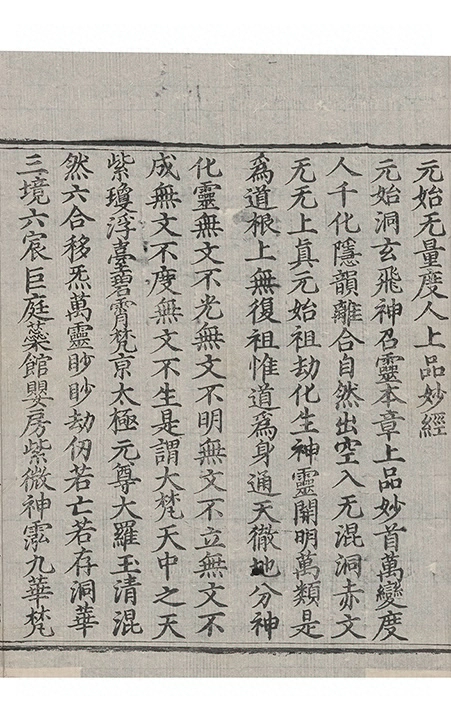 元始无量度人上品妙經
元始洞玄飛神召靈本章上品妙首萬變度
人千化隱韻離合自然出空入无混洞赤文
无无上真元始祖劫化生神靈開明萬類是
爲道根上無復祖惟道爲身通天徹地分神
化靈無文不光無文不明無文不立無文不
成無文不度無文不生是謂大梵天中之天
紫瓊浮臺碧霄梵京太極元尊大羅玉清混
然六合移炁萬靈眇眇劫仞若亡若存洞華
三境六宸巨庭蘂館嬰房紫微神霐九華梵